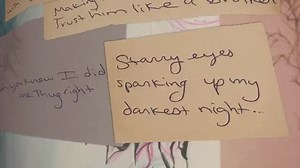 Making
Trust him like a brother
you know I did
one Thug right
Starry eyes
sparking up my
darkest night...